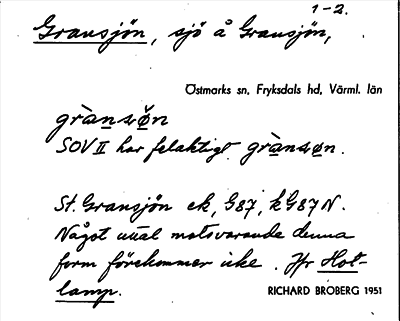 1-2.
Gransjön, sjö å Gransjön,
Östmarks sn, Fryksdals hd, Värml. län
grànsǿn
SOV II har felaktigt grànsøn.
St. Gransjön ek, G87, kG87N.
Något uttal motsvarande denna
form förekommer icke. Jfr Hot-
lamp.
RICHARD BROBERG 1951